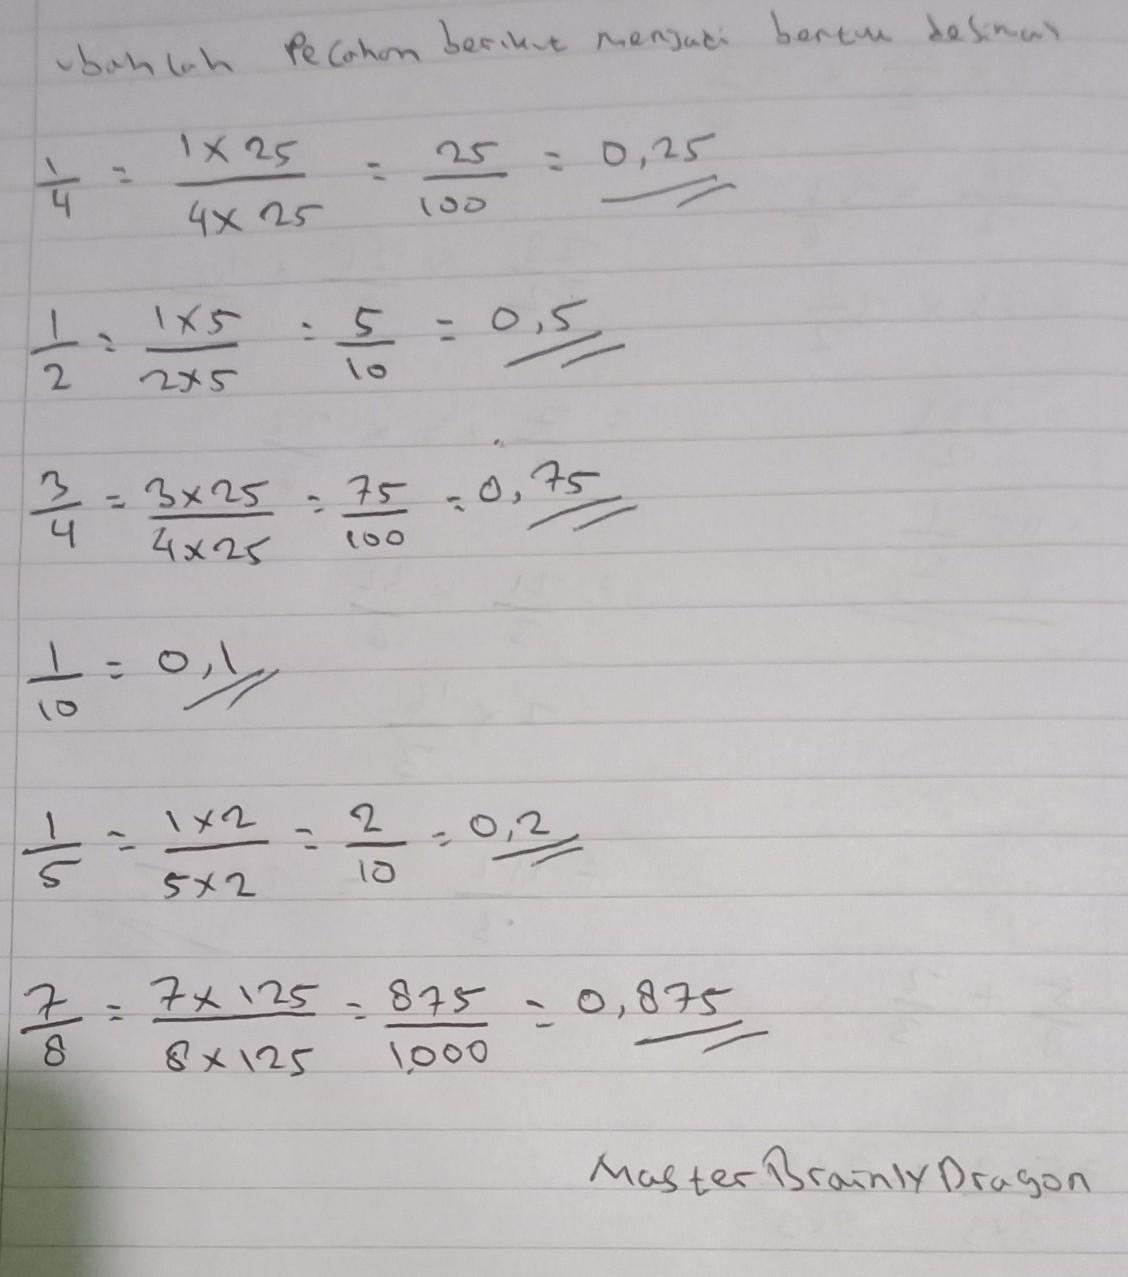 ubahlah Pecahan berikut menjadi bentuk desimal
1/4 = 1 x 25 / 4 x 25 = 25/100 = 0,25
1/2 = 1 x 5 / 2 x 5 = 5/10 = 0,5
3/4 = 3 x 25 / 4 x 25 = 75/100 = 0,75
1/10 = 0,1
1/5 = 1 x 2 / 5 x 2 = 2/10 = 0,2
7/8 = 7 x 125 / 8 x 125 = 875/1.000 = 0,875
MasterBrainlyDragon